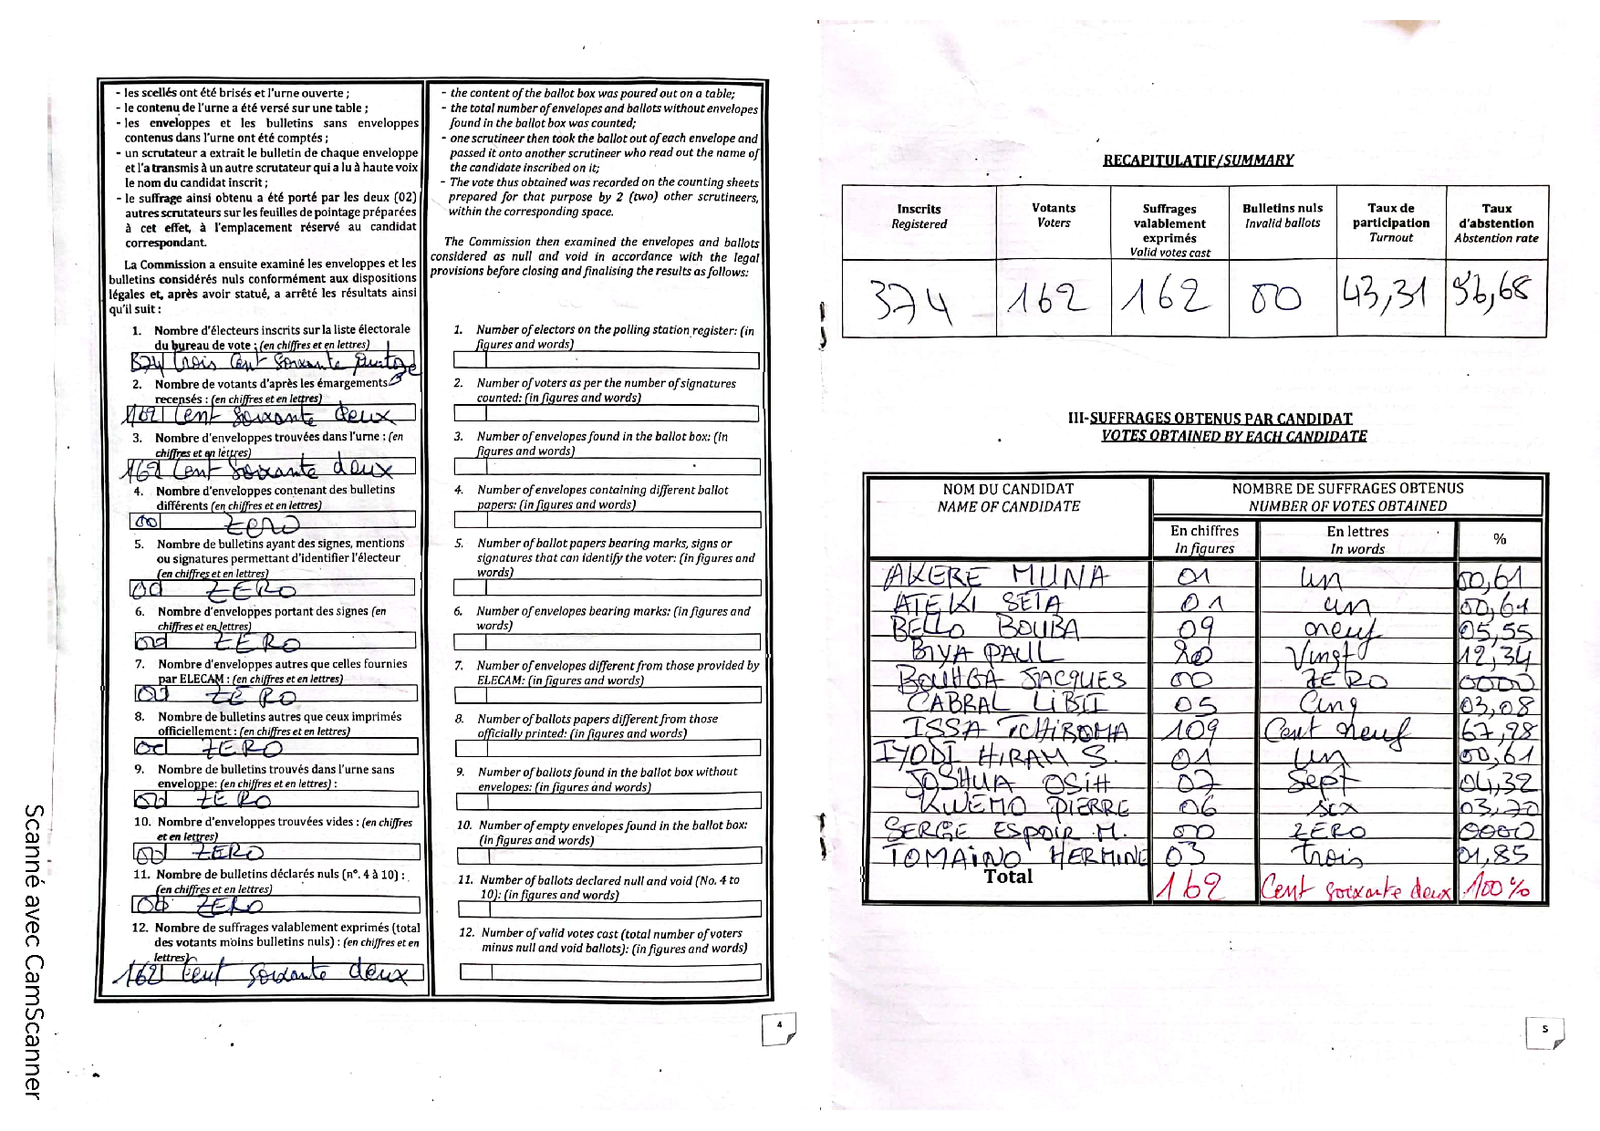 - les scellés ont été brisés et l'urne ouverte ;
- le contenu de l'urne a été versé sur une table ;
- les enveloppes et les bulletins sans enveloppes
contenus dans l'urne ont été comptés ;
- un scrutateur a extrait le bulletin de chaque enveloppe
et l'a transmis à un autre scrutateur qui a lu à haute voix
le nom du candidat inscrit ;
- le suffrage ainsi obtenu a été porté par les deux (02)
autres scrutateurs sur les feuilles de pointage préparées
à cet effet, à l'emplacement réservé au candidat
correspondant.
La Commission a ensuite examiné les enveloppes et les
bulletins considérés nuls conformément aux dispositions
légales et, après avoir statué, a arrêté les résultats ainsi
qu'il suit :
1. Nombre d'électeurs inscrits sur la liste électorale
du bureau de vote : (en chiffres et en lettres)
374 trois cent soixante
2. Nombre de votants d'après les émargements
recensés : (en chiffres et en lettres)
162 Cent soixante deux
3. Nombre d'enveloppes trouvées dans l'urne : (en
chiffres et en lettres)
162 Cent soixante deux
4. Nombre d'enveloppes contenant des bulletins
différents (en chiffres et en lettres)
00 ZERO
5. Nombre de bulletins ayant des signes, mentions
ou signatures permettant d'identifier l'électeur
(en chiffres et en lettres)
00 ZERO
6. Nombre d'enveloppes portant des signes (en
chiffres et en lettres)
00 ZERO
7. Nombre d'enveloppes autres que celles fournies
par ELECAM : (en chiffres et en lettres)
00 ZERO
8. Nombre de bulletins autres que ceux imprimés
officiellement : (en chiffres et en lettres)
00 ZERO
9. Nombre de bulletins trouvés dans l'urne sans
enveloppe: (en chiffres et en lettres) :
00 ZERO
10. Nombre d'enveloppes trouvées vides : (en chiffres
et en lettres)
00 ZERO
11. Nombre de bulletins déclarés nuls (n°. 4 à 10) :
(en chiffres et en lettres)
00 ZERO
12. Nombre de suffrages valablement exprimés (total
des votants moins bulletins nuls) : (en chiffres et en
lettres)
162 Cent soixante deux
- the content of the ballot box was poured out on a table;
- the total number of envelopes and ballots without envelopes
found in the ballot box was counted;
- one scrutineer then took the ballot out of each envelope and
passed it onto another scrutineer who read out the name of
the candidate inscribed on it;
- The vote thus obtained was recorded on the counting sheets
prepared for that purpose by 2 (two) other scrutineers,
within the corresponding space.
The Commission then examined the envelopes and ballots
considered as null and void in accordance with the legal
provisions before closing and finalising the results as follows:
1. Number of electors on the polling station register: (in
figures and words)
2. Number of voters as per the number of signatures
counted: (in figures and words)
3. Number of envelopes found in the ballot box: (In
figures and words)
4. Number of envelopes containing different ballot
papers: (in figures and words)
5. Number of ballot papers bearing marks, signs or
signatures that can identify the voter: (in figures and
words)
6. Number of envelopes bearing marks: (in figures and
words)
7. Number of envelopes different from those provided by
ELECAM: (in figures and words)
8. Number of ballots papers different from those
officially printed: (in figures and words)
9. Number of ballots found in the ballot box without
envelopes: (in figures and words)
10. Number of empty envelopes found in the ballot box:
(in figures and words)
11. Number of ballots declared null and void (No. 4 to
10): (in figures and words)
12. Number of valid votes cast (total number of voters
minus null and void ballots): (in figures and words)
4
Scanné avec CamScanner
RECAPITULATIF/SUMMARY
Inscrits Registered Votants Voters Suffrages valablement exprimés Valid votes cast Bulletins nuls Invalid ballots Taux de participation Turnout Taux d'abstention Abstention rate
374 162 162 00 43,31 56,68
III-SUFFRAGES OBTENUS PAR CANDIDAT
VOTES OBTAINED BY EACH CANDIDATE
NOM DU CANDIDAT NOMBRE DE SUFFRAGES OBTENUS
NAME OF CANDIDATE NUMBER OF VOTES OBTAINED
En chiffres En lettres %
In figures In words
AKERE MUNA 01 un 00,61
ATEKI SETA 01 un 00,61
BELLO BOUBA 09 neuf 05,55
BIYA PAUL 20 Vingt 12,34
BOUHGA JACQUES 00 ZERO 0000
CABRAL LIBII 05 Cinq 03,08
ISSA TCHIROMA 109 Cent neuf 67,98
IYODI HIRAM S. 01 un 00,61
JOSHUA OSIH 07 Sept 04,32
KWEMO PIERRE 06 six 03,70
SERGE ESPOIR M. 00 ZERO 0000
TOMAINO HERMINE 03 trois 01,85
Total 162 Cent soixante deux 100%
5